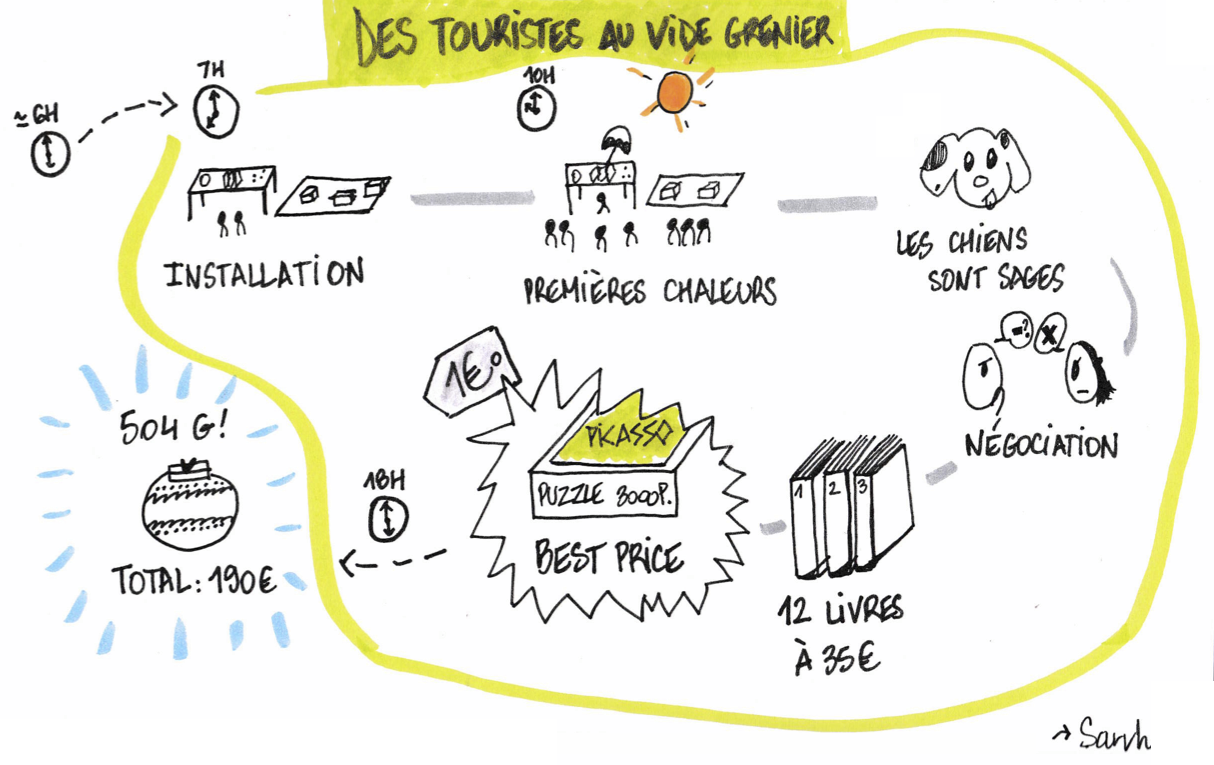 DES TOURISTES AU VIDE GRENIER
≃ 6H
7H
INSTALLATION
10H
PREMIÈRES CHALEURS
LES CHIENS
SONT SAGES
=?
X
NÉGOCIATION
1 2 3
12 LIVRES
À 35€
1€
PICASSO
PUZZLE 3000P.
BEST PRICE
18H
504 G!
TOTAL: 190€
→ Sarah